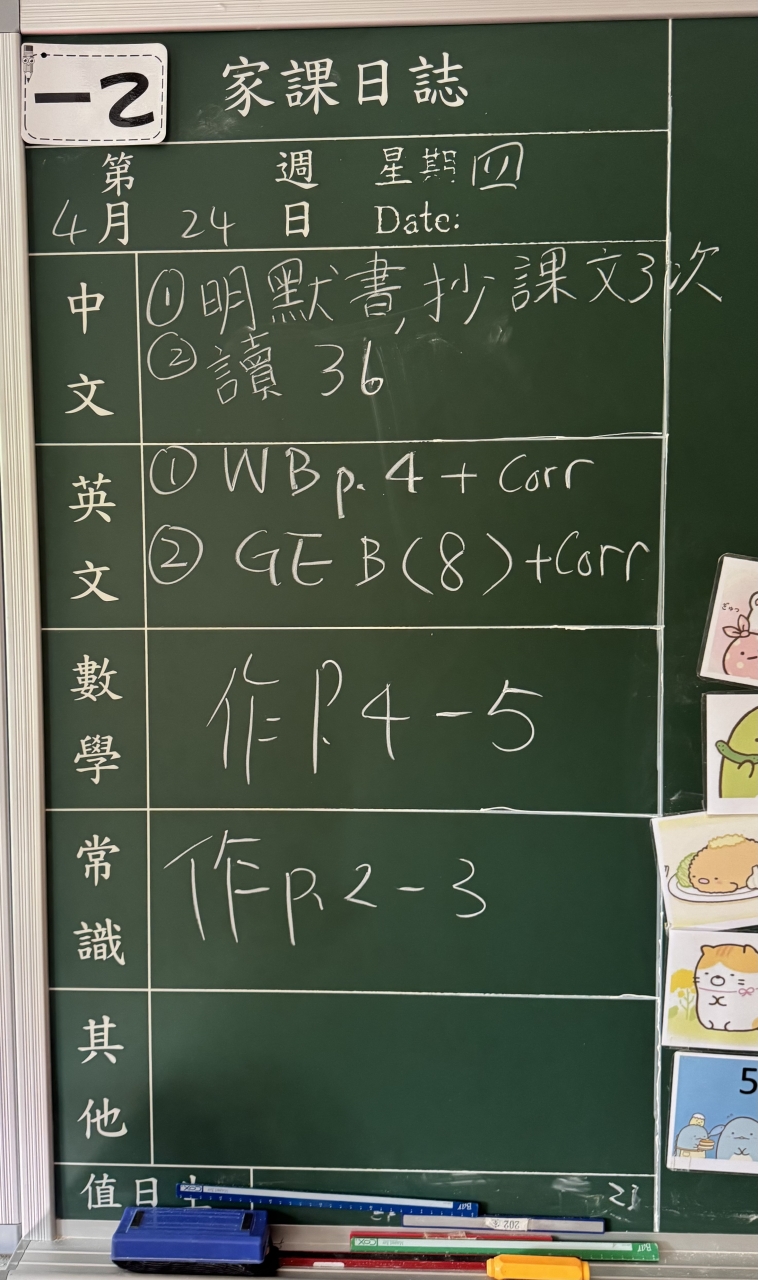 一乙
家課日誌
第 週 星期四
4月 24 日 Date:
中文
① 明默書,抄課文3次
② 讀 36
英文
① WB p. 4 + Corr
② GE B(8) + Corr
數學
作 P.4-5
常識
作 p. 2-3
其他
值日生
21
5